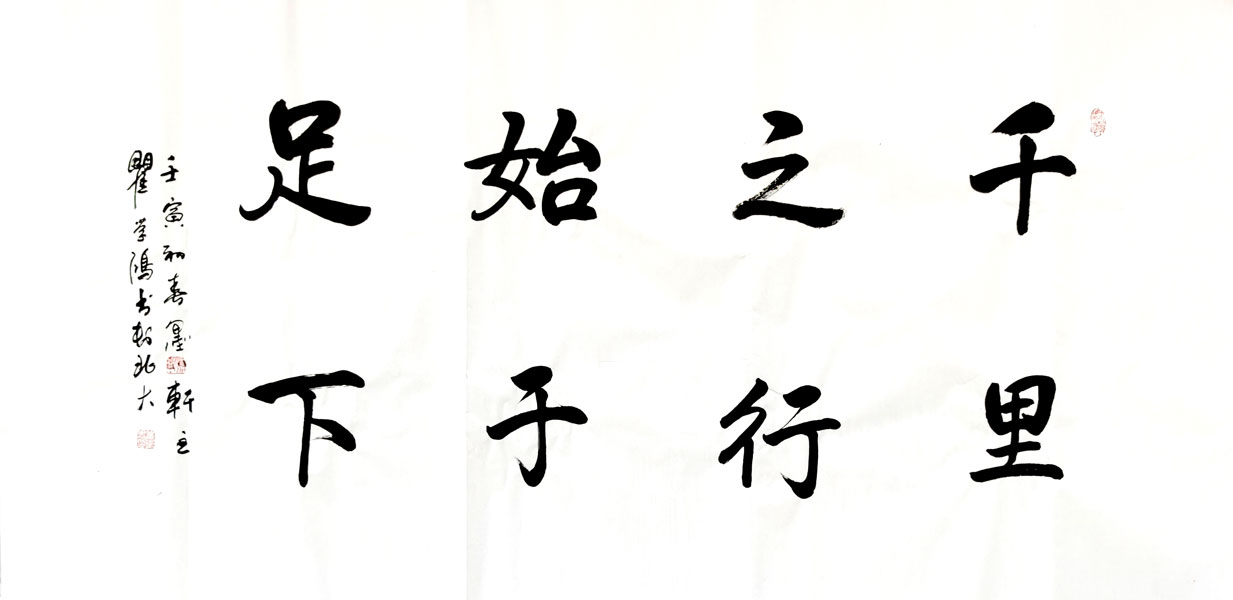 千里
之行
始于
足下
壬寅初喜墨軒主
瞿学鴻书於北大